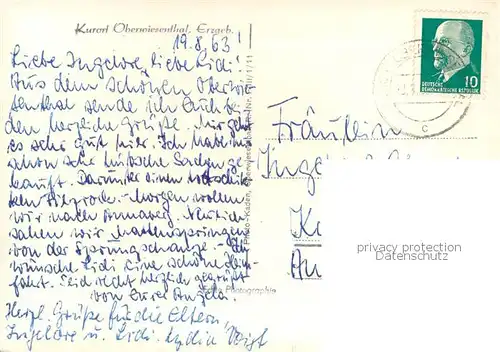 Kurort Oberwiesenthal, Erzgeb.
19.8.63!
Liebe Ingelore, liebe Lidi!
Aus dem schönen Oberwie-
senthal sende ich Euch bei-
den herzliche Grüße. Mir geht
es sehr gut hier. Ich habe mir
schon sehr hübsche Sachen ge-
kauft. Darunter einen totschik-
ken Filzrock. - Morgen wollen
wir nach Annaberg. Neulich
sahen wir Mattenspringen
von der Sprungschanze. - Ich
wünsche Lidi eine schöne Heim-
fahrt. Seid recht herzlich gegrüßt
von Eurer Angela.
Herzl. Grüße für die Eltern!
Ingelore u. Lidi. Lydia Voigt
Echte Photographie
Photo-Kaden,
10
DEUTSCHE
DEMOKRATISCHE REPUBLIK
c
Fräulein
Inge
K
An
privacy protection
Datenschutz